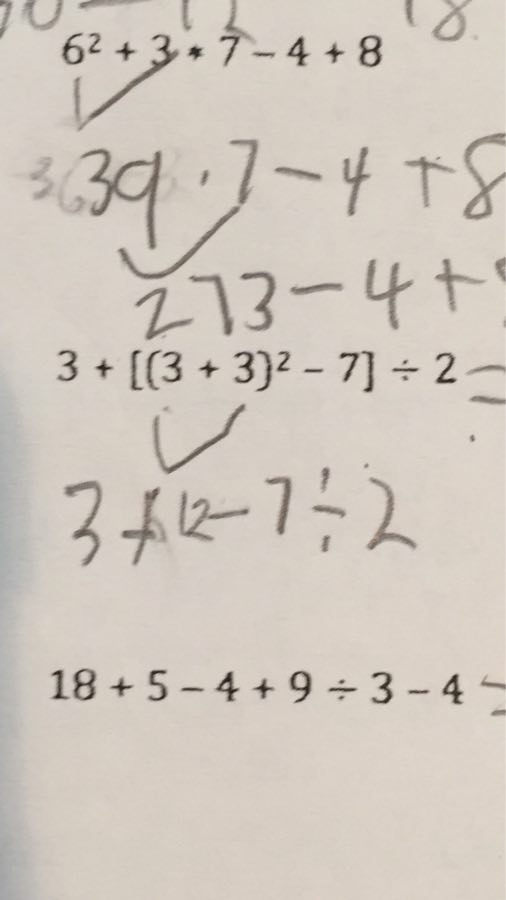 18.
6² + 3 * 7 – 4 + 8
39 · 7 – 4 + 8
273 – 4 +
3 + [(3 + 3)² – 7] ÷ 2 =
3 + 12 – 7 ÷ 2
18 + 5 – 4 + 9 ÷ 3 – 4 =